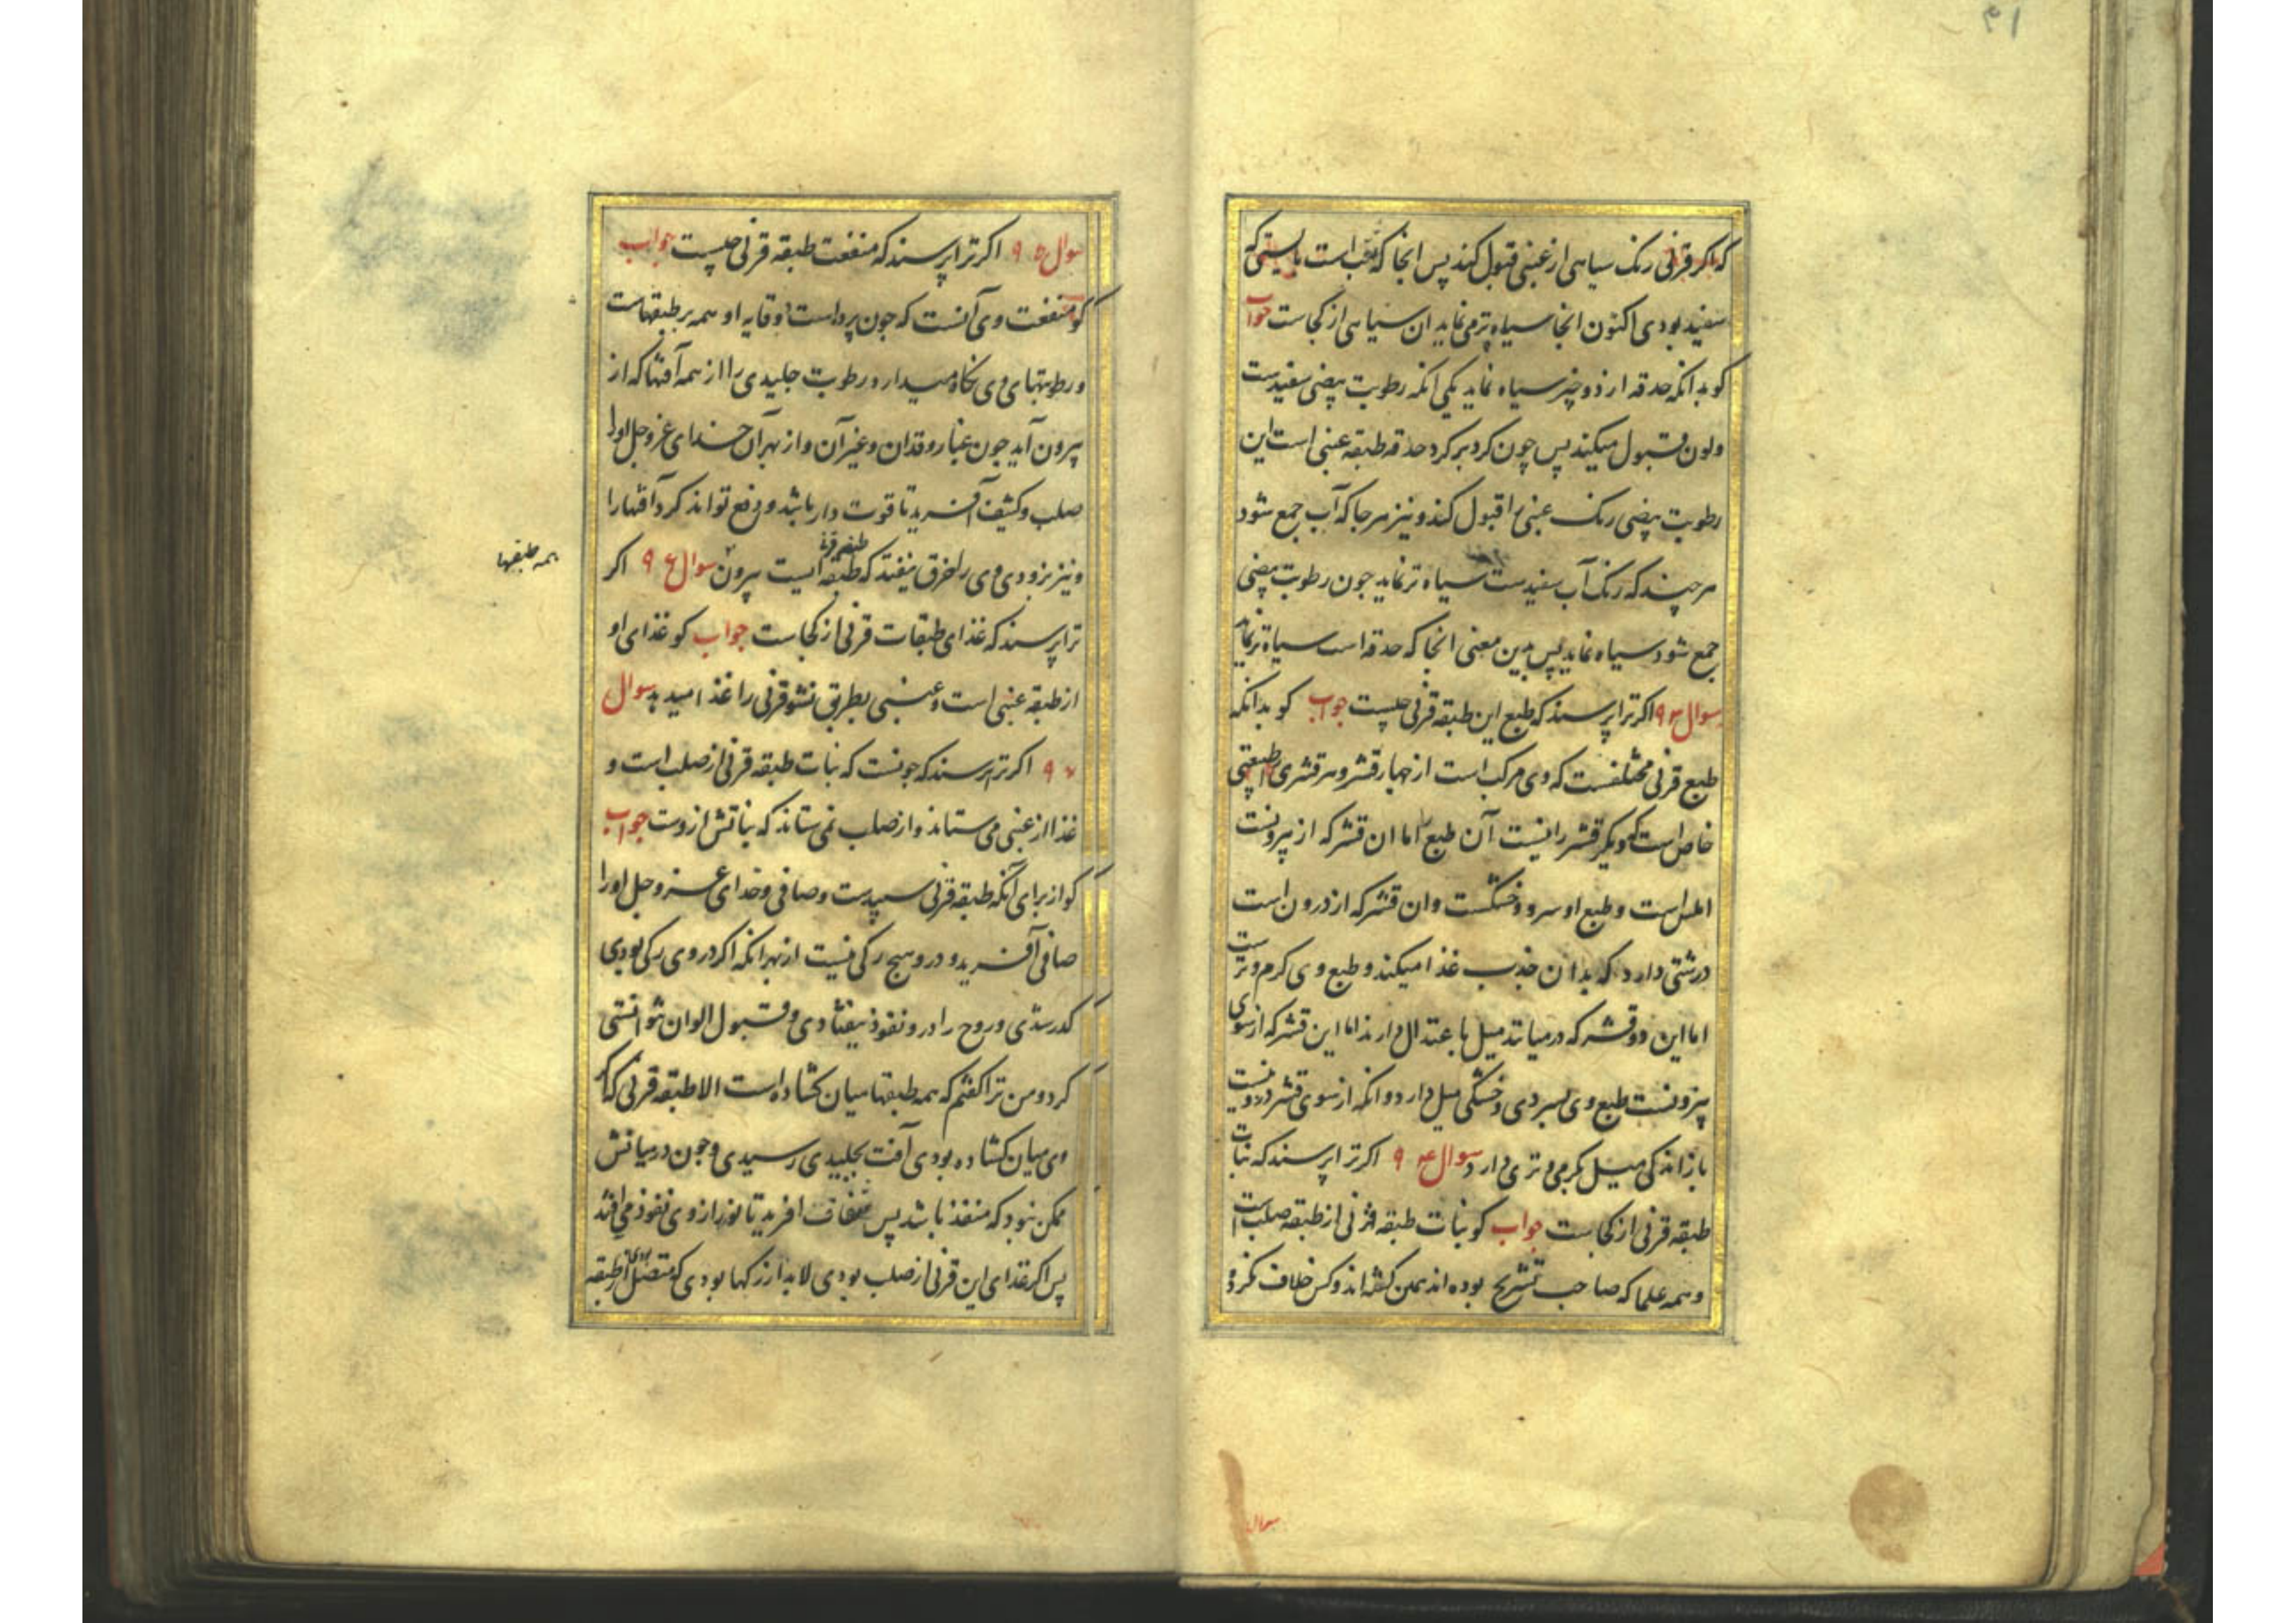 ۴۱
که اگر قرنی رنک سیاهی از عنبی قبول کند پس انجا که ثقب است بایستی که
سفید بودی اکنون انجا سیاه تر می نماید ان سیاهی از کجاست جواب
کو بدانکه حدقه از دو چیز سیاه نماید یکی انکه رطوبت بیضی سفیدست
ولون قبول میکند پس چون کرد بر کرد حدقه طبقه عنبی است این
رطوبت بیضی رنک عنبی را قبول کند و نیز هر جا که آب جمع شود
هر چند که رنک آب سفیدست سیاه تر نماید جون رطوبت بیضی
جمع شود سیاه نماید پس بدین معنی انجا که حدقه است سیاه تر نماید
سوال ۹۳ اکر ترا پرسند که طبع این طبقه قرنی چیست جواب کو بدانکه
طبع قرنی مختلفست که وی مرکب است از چهار قشر و هر قشری را طبیعتی
خاص است که دیکر قشر را نیست آن طبع اما ان قشر که از بیرونست
املس است و طبع او سرد و خشکست وان قشر که از درون است
درشتی دارد که بدان جذب غذا میکند و طبع وی کرم و ترست
اما این دو قشر که در میانند میل با عتدال دارند اما این قشر که از سوی
بیرونست طبع وی بسردی و خشکی میل دارد و انکه از سوی قشر درونیست
باز اندکی میل بکرمی و تری دارد سوال ۹۴ اکر ترا پرسند که نبات
طبقه قرنی از کجاست جواب کو نبات طبقه قرنی از طبقه صلب است
و همه علما که صاحب تشریح بوده اند همین کفته اند و کس خلاف نکرده
سوال
سوال ۹۵ اکر ترا پرسند که منفعت طبقه قرنی چیست جواب
کو منفعت وی آنست که جون پرده است و وقایه او همه بر طبقهاست
و رطوبتهای وی نکاه میدارد و رطوبت جلیدی را از همه آفتها که از
بیرون آید جون غبار و قذان و غیر آن و از بهر آن خدای عز و جل اورا
صلب و کثیف آفرید تا قوت دار باشد و دفع تواند کرد آفتها را
و نیز بزودی وی را خرق نیفتد که طبقه ایست بیرون سوال ۹۶ اکر
همه طبقها
ترا پرسند که غذای طبقات قرنی از کجاست جواب کو غذای او
از طبقه عنبی است و عنبی بطریق نشو قرنی را غذا میدهد سوال
۹۷ اکر ترا پرسند که چونست که نبات طبقه قرنی از صلب است و
غذا از عنبی می ستاند و از صلب نمی ستاند که نباتش از وست جواب
کو از برای آنکه طبقه قرنی سپیدست و صافی و خدای عز و جل اورا
صافی آفرید و در و هیچ رکی نیست از بهر انکه اکر در وی رکی بودی
کدر شدی و روح را در و نفوذ نیفتادی و قبول الوان نتوانستی
کرد و من ترا کفتم که همه طبقها میان کشاده است الا طبقه قرنی که اکر
وی میان کشاده بودی آفت بجلیدی رسیدی و جون در میانش
ممکن نبود که منفذ باشد پس شفاف افرید تا نور از وی نفوذ می افتد
پس اکر غذای این قرنی از صلب بودی لابد از رکها بودی که متصل بودی از طبقه